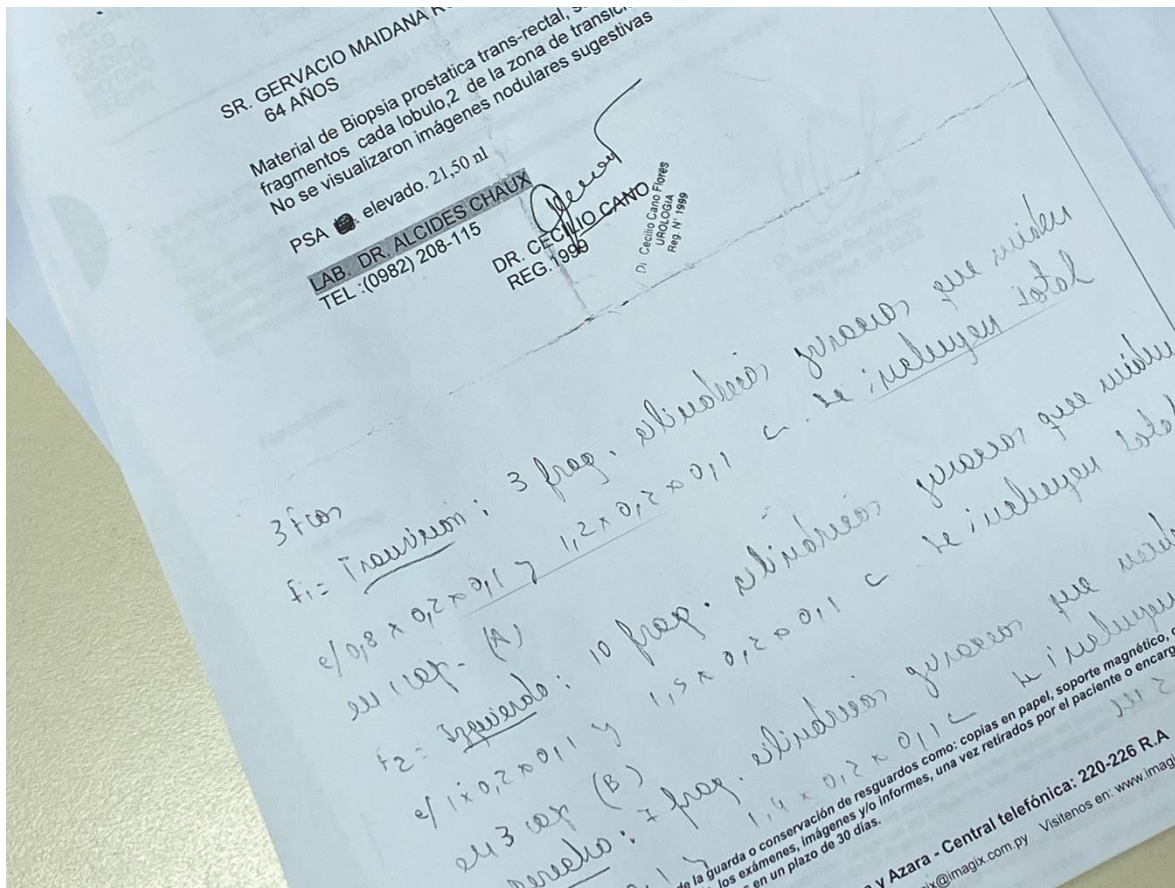 SR. GERVACIO MAIDANA
64 AÑOS
Material de Biopsia prostatica trans-rectal,
fragmentos cada lobulo,2 de la zona de
No se visualizaron imágenes nodulares sugestivas
PSA elevado. 21,50 nl
LAB. DR. ALCIDES CHAUX
TEL :(0982) 208-115
DR. CECILIO CANO
REG.1999
Cecilio Cano Flores
UROLOGIA
Reg. N° 1999
3 fcos
f1= Transicion: 3 frag. cilindricos que miden
e/0,8 x 0,2 x 0,1 y 1,2 x 0,2 x 0,1 c. se incluyen total
en 1 cap. (A)
f2= Izquierdo: 10 frag. cilindricos que miden
e/ 1 x 0,2 x 0,1 y 1,5 x 0,2 x 0,1 c se incluyen total
en 3 cap (B)
Derecho: 7 frag. cilindricos que
0,1 y 1,4 x 0,2 x 0,1 c se incluyen
de la guarda o conservación de resguardos como: copias en papel, soporte magnético,
los exámenes, imágenes y/o informes, una vez retirados por el paciente o
en un plazo de 30 días.
y Azara - Central telefónica: 220-226 R.A
@imagix.com.py Visitenos en: www.imag